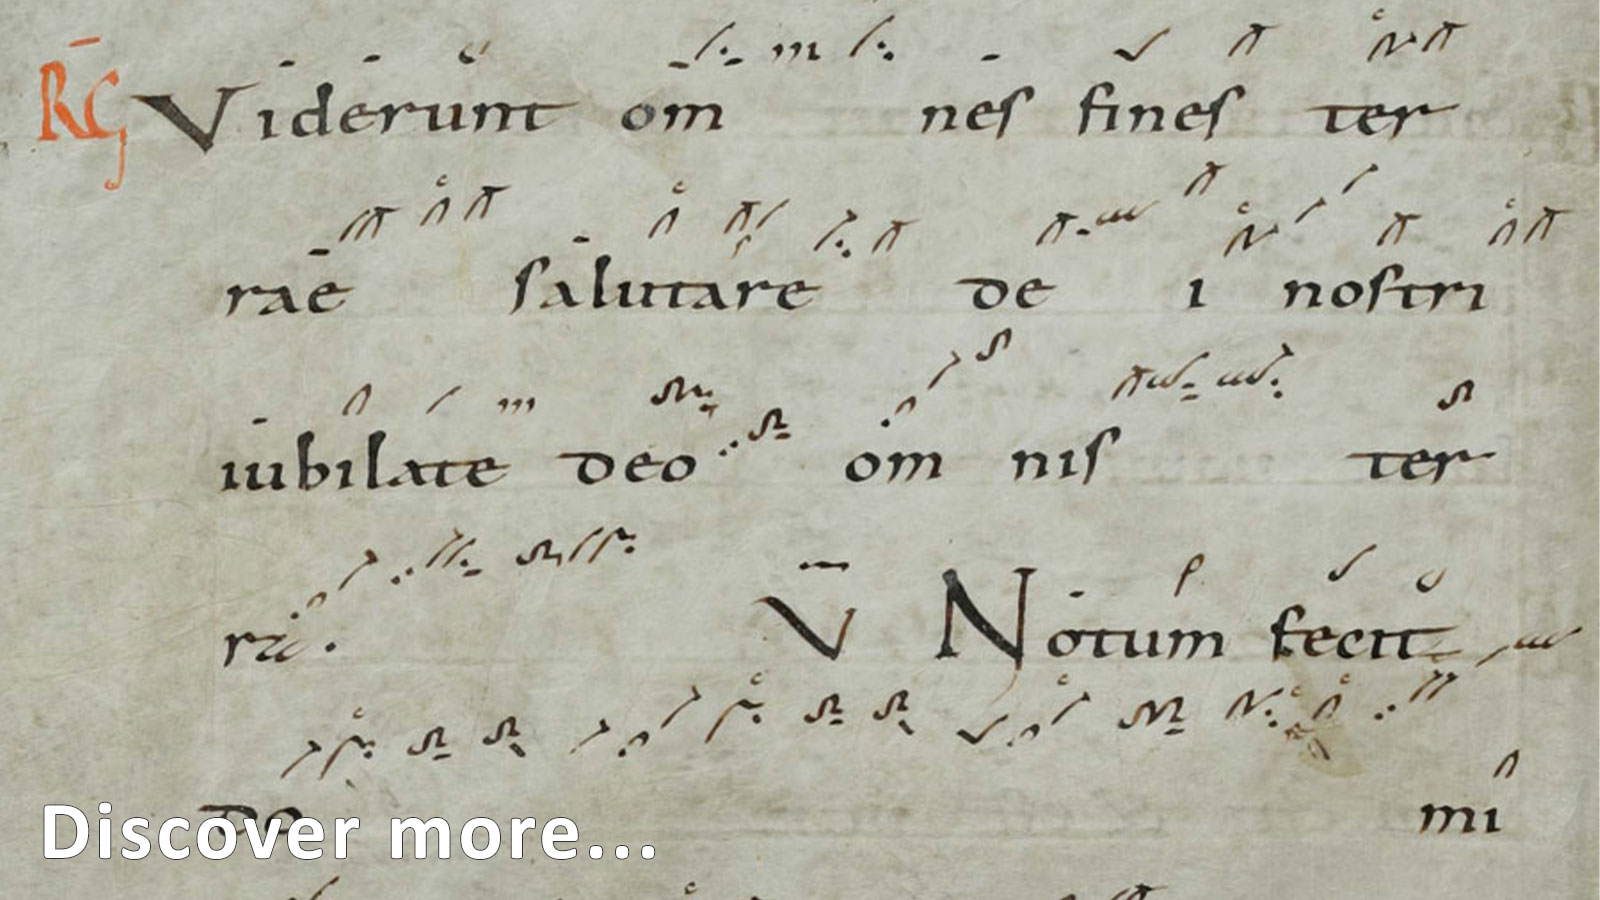 RG Viderunt om nes fines ter
rae salutare de i nostri
iubilate deo om nis ter
ra. V Notum fecit
Do mi
Discover more...